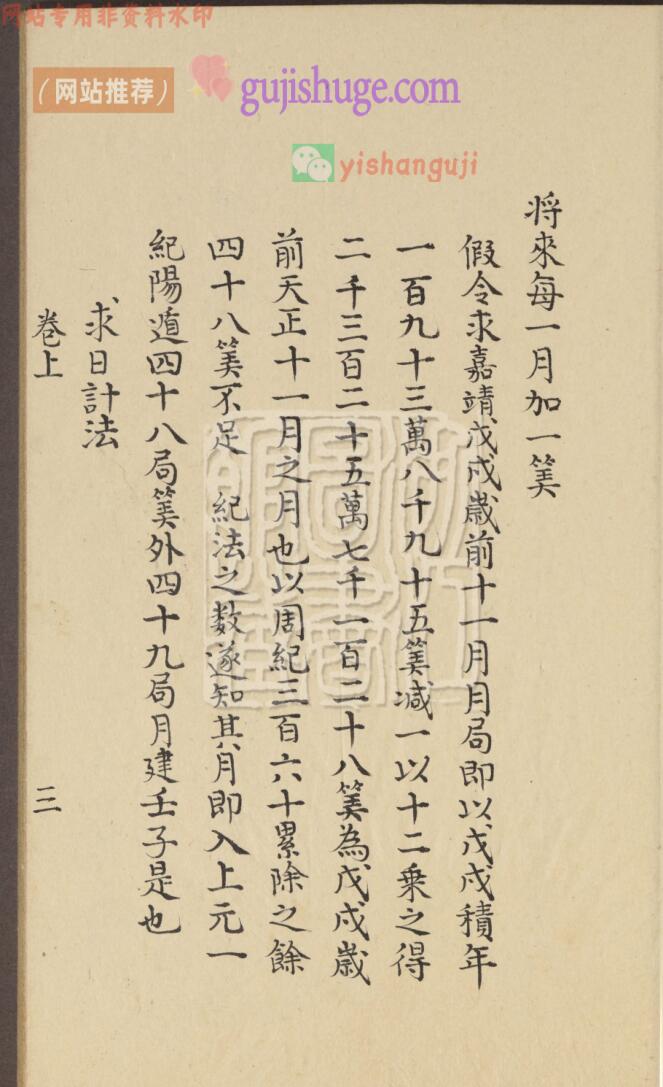 网站专用非资料水印
（网站推荐）
gujishuge.com
yishanguji
将來每一月加一筭
假令求嘉靖戊戌歲前十一月月局即以戊戌積年
一百九十三萬八千九十五筭减一以十二乗之得
二千三百二十五萬七千一百二十八筭為戊戌歲
前天正十一月之月也以周紀三百六十累除之餘
四十八筭不足 紀法之数遂知其月即入上元一
紀陽遁四十八局筭外四十九局月建壬子是也
求日計法
卷上 三